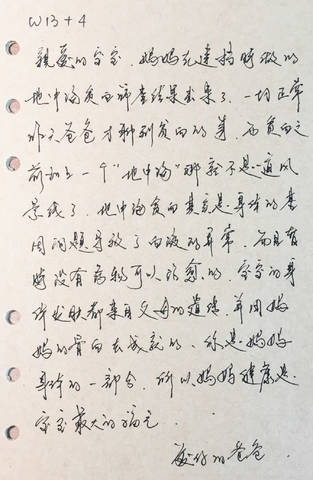 W13+4
亲爱的宝宝，妈妈在建档时做的
地中海贫血筛查结果出来了，一切正常
昨天爸爸才聊到贫血的事，而贫血之
前加上一个“地中海”那就不是一道风
景线了，地中海贫血其实是身体的基
因问题导致了白液的异常，而且暂
时没有药物可以治愈的，宝宝的身
体发肤都来自父母的遗传，并用妈
妈的骨血去成就的，你是妈妈
身体的一部分，所以妈妈健康是
宝宝最大的福气.
爱你的爸爸.